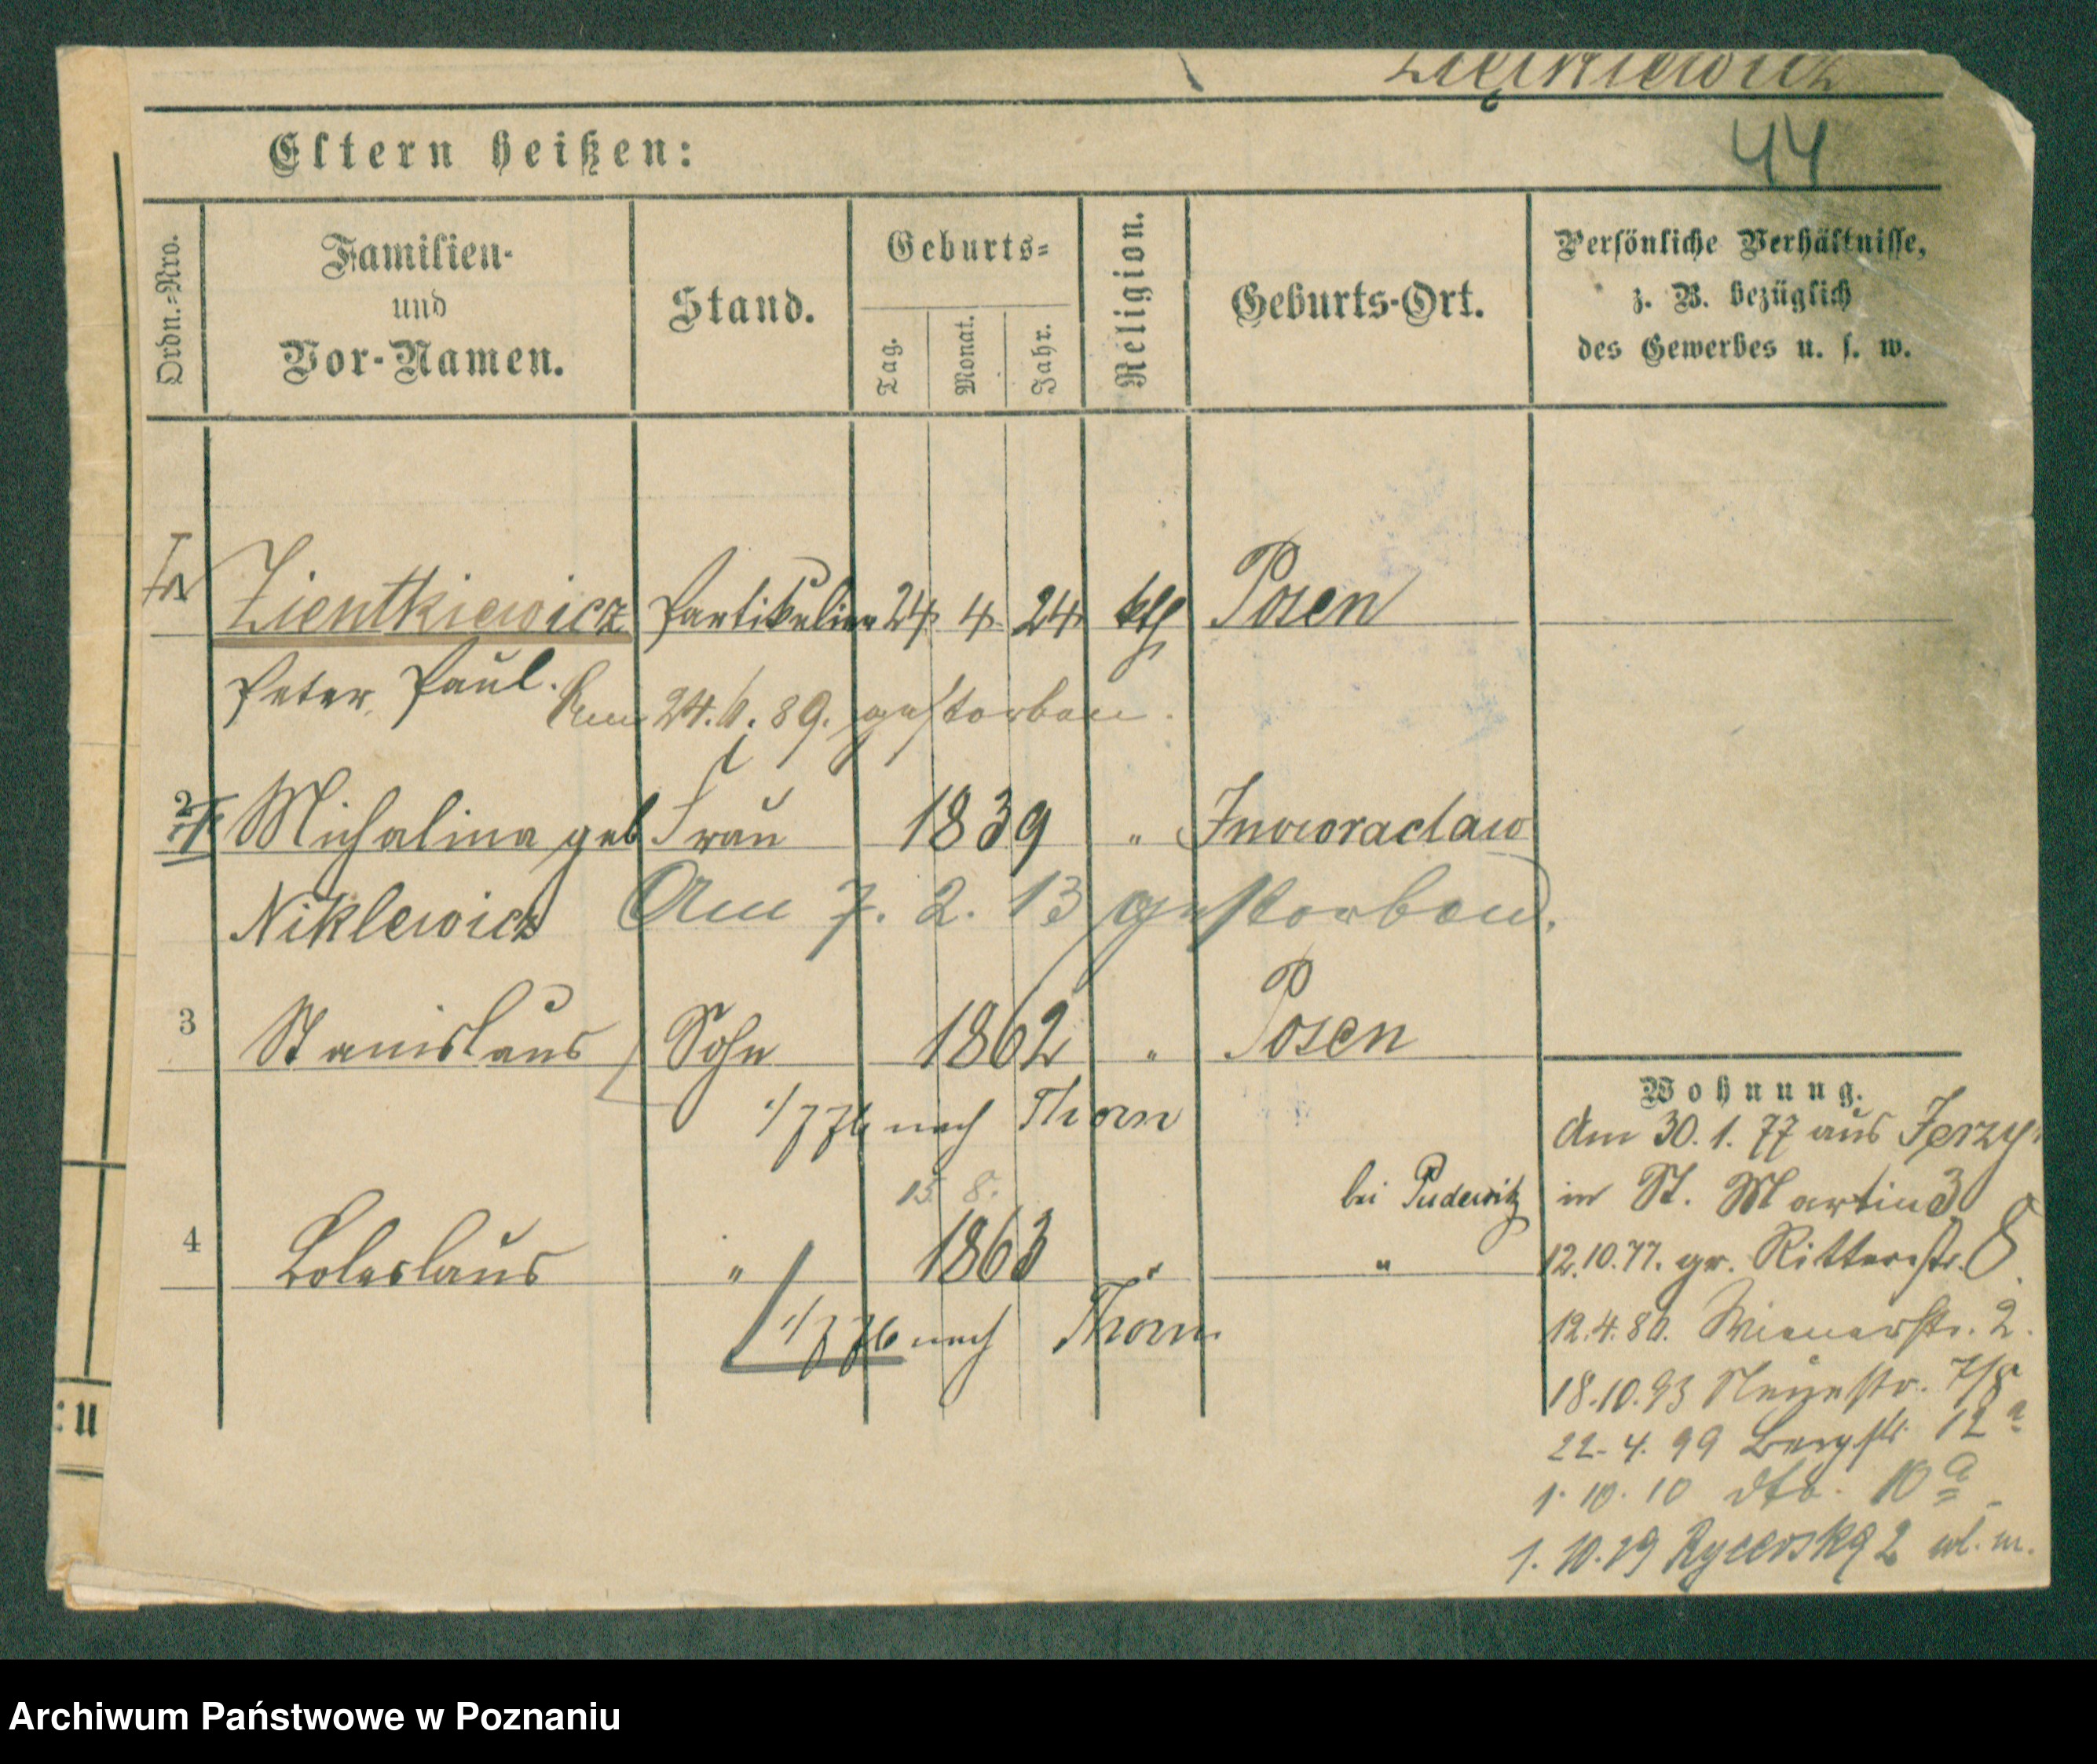 Ziętkiewicz
44
Eltern heißen:
Ordn.-Nro.
Familien-
und
Vor-Namen.
Stand.
Geburts-
Tag.
Monat.
Jahr.
Religion.
Geburts-Ort.
Persönliche Verhältnisse,
z. B. bezüglich
des Gewerbes u. s. w.
Zientkiewicz Partikulier 24 4 24 kth Posen
Peter Paul. Am 24.6.89. gestorben.
2 Michalina geb Frau 1839 " Inowraclaw
Niklewicz Am 7. 2. 13 gestorben.
3 Stanislaus Sohn 1862 " Posen
1/7 76 nach Thorn
15 8. bei Pudewitz
4 Boleslaus " 1863 " "
1/7 76 nach Thorn
Wohnung.
Am 30. 1. 77 aus Jerzy
in St. Martin 3
12.10.77. gr. Ritterstr. 8.
12.4.86. Wienerstr. 2.
18.10.93 Neuestr. 7/8
22-4. 99 Bergstr. 12 a
1. 10. 10 dto. 10 a
1. 10. 19 Rycerska 2 wł. m.
:u
Archiwum Państwowe w Poznaniu